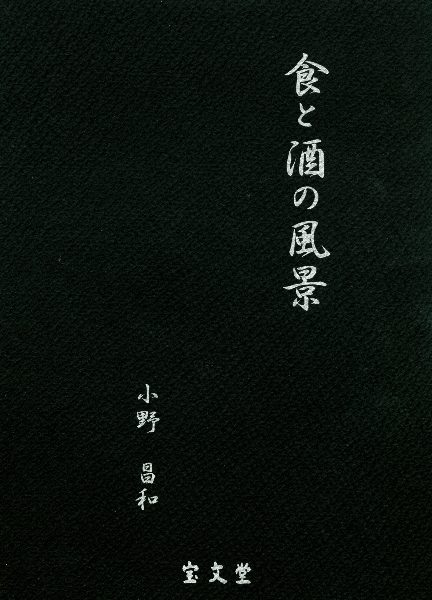 食と酒の風景
小野 昌和
宝文堂